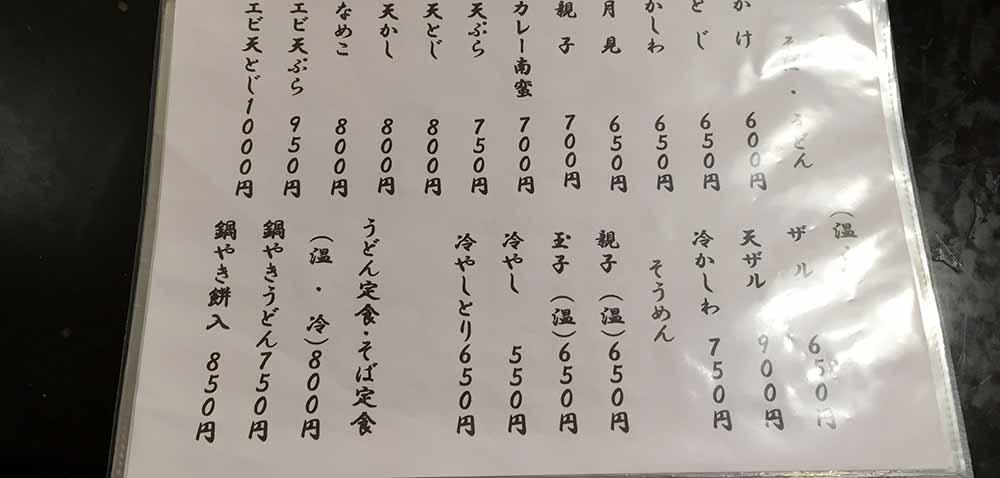 そば・うどん
かけ 600円
とじ 650円
かしわ 650円
月見 650円
親子 700円
カレー南蛮 700円
天ぷら 750円
天とじ 800円
天かし 800円
なめこ 800円
エビ天ぷら 950円
エビ天とじ 1000円
(温・
ザル 650円
天ザル 900円
冷かしわ 750円
そうめん
親子(温) 650円
玉子(温) 650円
冷やし 550円
冷やしとり 650円
うどん定食・そば定食
(温・冷) 800円
鍋やきうどん 750円
鍋やき餅入 850円